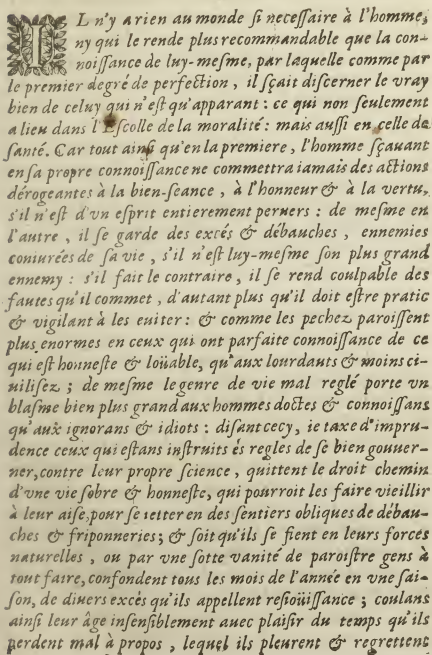 IL n'y a rien au monde ſi neceſſaire à l'homme,
ny qui le rende plus recommandable que la con-
noiſſance de luy-meſme, par laquelle comme par
le premier degré de perfection, il ſçait diſcerner le vray
bien de celuy qui n'eſt qu'apparant : ce qui non ſeulement
a lieu dans l'Eſcolle de la moralité: mais auſſi en celle de
ſanté. Car tout ainſi qu'en la premiere, l'homme ſçauant
en ſa propre connoiſſance ne commettra iamais des actions
dérogeantes à la bien-ſeance, à l'honneur & à la vertu,
s'il n'eſt d'vn eſprit entierement peruers : de meſme en
l'autre, il ſe garde des excés & débauches, ennemies
coniurées de ſa vie, s'il n'eſt luy-meſme ſon plus grand
ennemy : s'il fait le contraire, il ſe rend coulpable des
fautes qu'il commet, d'autant plus qu'il doit eſtre pratic
& vigilant à les euiter : & comme les pechez paroiſſent
plus enormes en ceux qui ont parfaite connoiſſance de ce
qui eſt honneſte & loüable, qu'aux lourdauts & moins ci-
uiliſez ; de meſme le genre de vie mal reglé porte vn
blaſme bien plus grand aux hommes doctes & connoiſſans
qu'aux ignorans & idiots : diſant cecy, ie taxe d'impru-
dence ceux qui eſtans inſtruits és regles de ſe bien gouuer-
ner, contre leur propre ſcience, quittent le droit chemin
d'vne vie ſobre & honneſte, qui pourroit les faire vieillir
à leur aiſe, pour ſe ietter en des ſentiers obliques de débau-
ches & friponneries; & ſoit qu'ils ſe fient en leurs forces
naturelles, ou par vne ſotte vanité de paroiſtre gens à
tout faire, confondent tous les mois de l'année en vne ſai-
ſon, de diuers excés qu'ils appellent reſioüiſſance ; coulans
ainſi leur âge inſenſiblement auec plaiſir du temps qu'ils
perdent mal à propos, lequel ils pleurent & regrettent